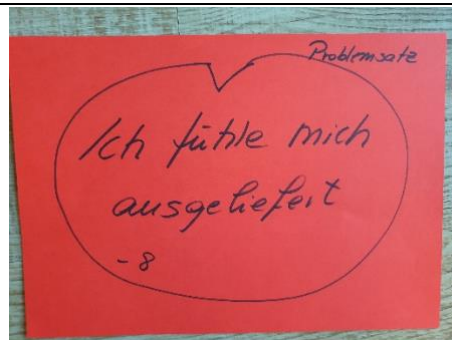 Problemsatz
Ich fühle mich
ausgeliefert
- 8